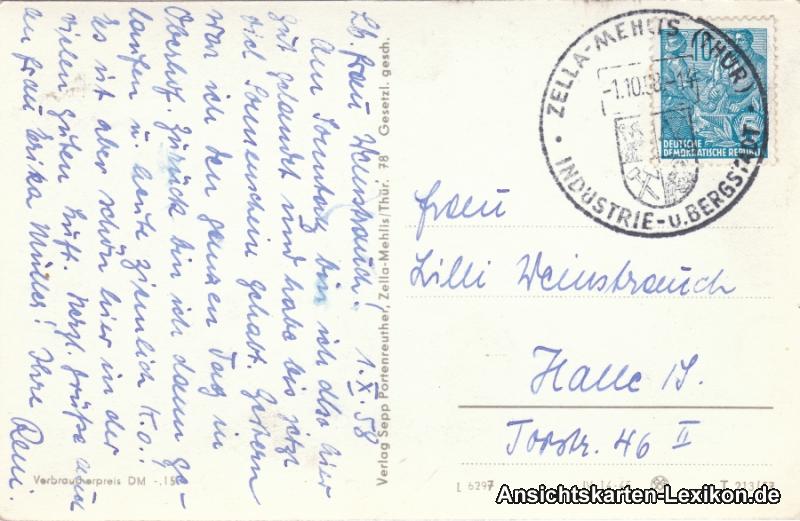 Lb. Frau Weinstrauch! 1.X.58
Am Sonntag bin ich also hier
gut gelandet und habe bis jetzt
viel Sonnenschein gehabt. Gestern
war ich den ganzen Tag in
Oberhof. Zurück bin ich dann ge-
laufen u. heute ziemlich k.o.:
Es ist aber schön hier in der
vielen guten Luft. Herzl. Grüße auch
an Frau Erika Müller! Ihre Reni.
Verbraucherpreis DM -.15
Verlag Sepp Portenreuther, Zella-Mehlis/Thür. 78 Gesetzl. gesch.
ZELLA-MEHLIS (THÜR)
-1.10.58.-14
INDUSTRIE-u.BERGSTADT
10
DEUTSCHE
DEMOKRATISCHE REPUBLIK
Frau
Lilli Weinstrauch
Halle /S.
Torstr. 46 II
L 6297
Ansichtskarten-Lexikon.de